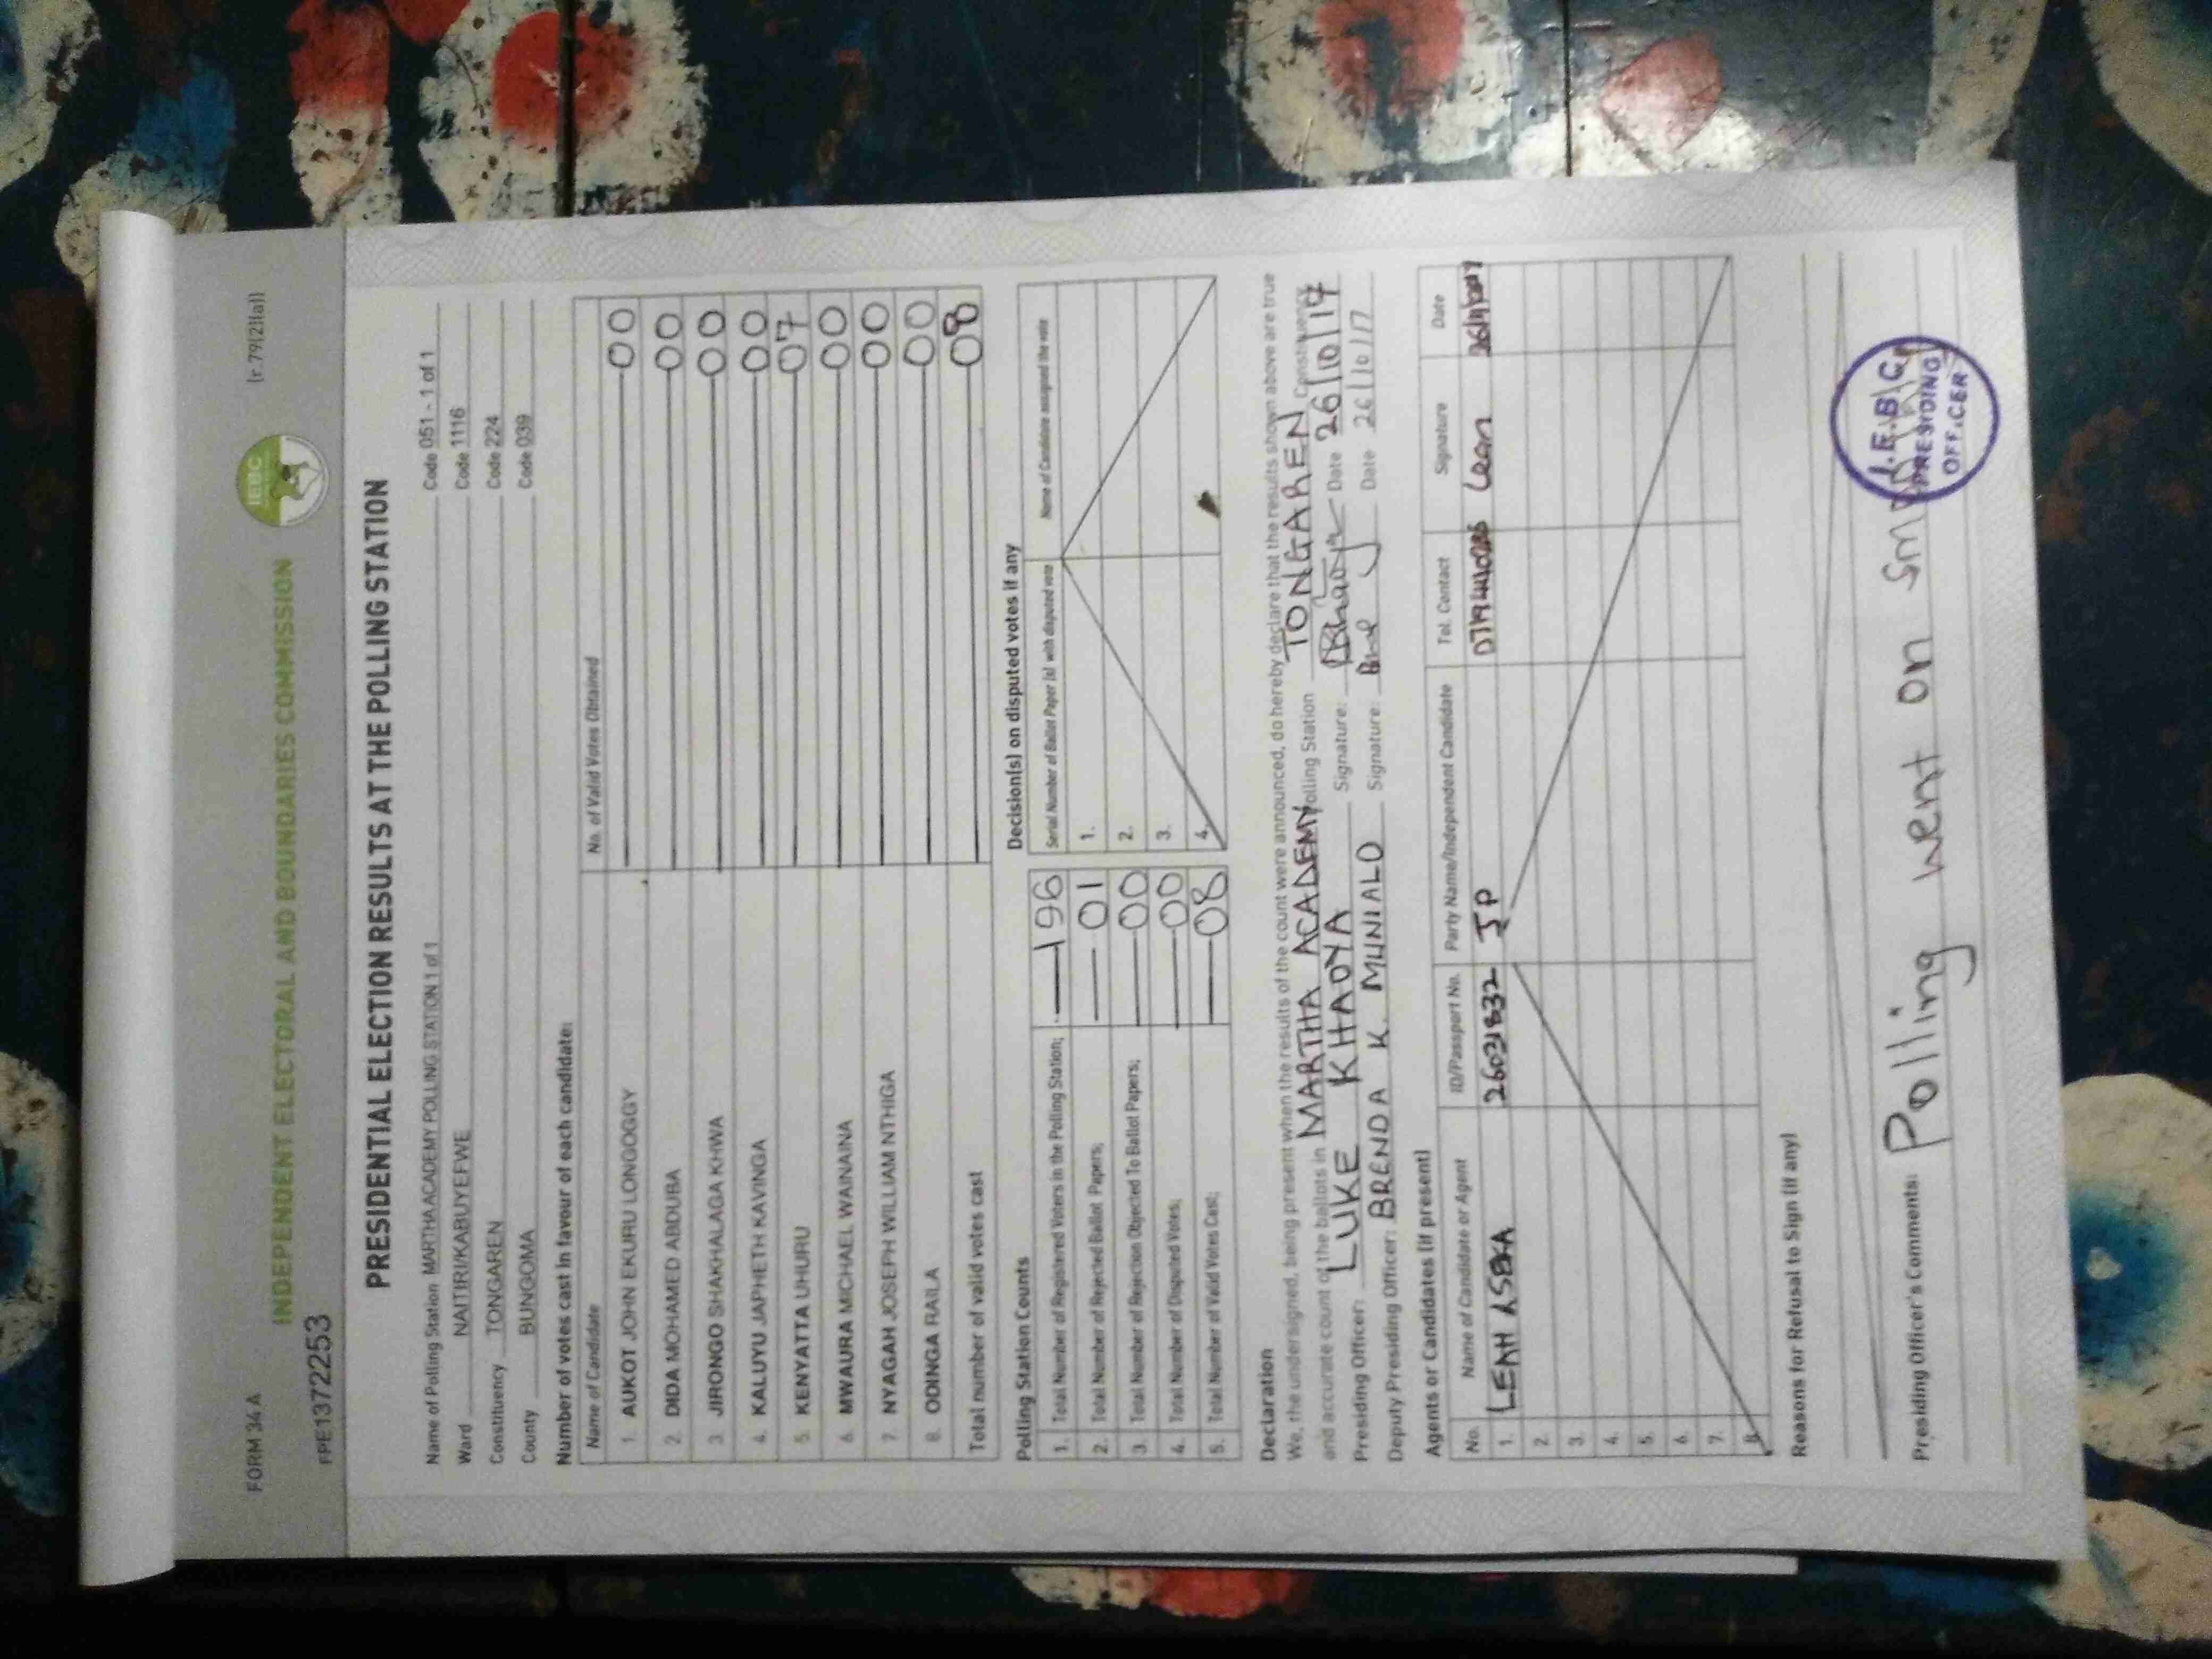 FORM 34 A
[r.79(2)(a)]
INDEPENDENT ELECTORAL AND BOUNDARIES COMMISSION
IEBC
FPE1372253
PRESIDENTIAL ELECTION RESULTS AT THE POLLING STATION
Name of Polling Station MARTHA ACADEMY POLLING STATION 1 of 1 Code 051 - 1 of 1
Ward NAITIRI/KABUYEFWE Code 1116
Constituency TONGAREN Code 224
County BUNGOMA Code 039
Number of votes cast in favour of each candidate:
Name of Candidate No. of Valid Votes Obtained
1. AUKOT JOHN EKURU LONGOGGY 00
2. DIDA MOHAMED ABDUBA 00
3. JIRONGO SHAKHALAGA KHWA 00
4. KALUYU JAPHETH KAVINGA 00
5. KENYATTA UHURU 07
6. MWAURA MICHAEL WAINAINA 00
7. NYAGAH JOSEPH WILLIAM NTHIGA 00
8. ODINGA RAILA 00
Total number of valid votes cast 08
Polling Station Counts
1. Total Number of Registered Voters in the Polling Station; 196
2. Total Number of Rejected Ballot Papers; 01
3. Total Number of Rejection Objected To Ballot Papers; 00
4. Total Number of Disputed Votes; 00
5. Total Number of Valid Votes Cast; 08
Decision(s) on disputed votes if any
Serial Number of Ballot Paper (s) with disputed vote Name of Candidate assigned the vote
1.
2.
3.
4.
Declaration
We, the undersigned, being present when the results of the count were announced, do hereby declare that the results shown above are true
and accurate count of the ballots in MARTHA ACADEMY Polling Station TONGAREN Constituency
Presiding Officer: LUKE KHAOYA Signature: Date 26/10/17
Deputy Presiding Officer: BRENDA K. MUNIALO Signature: Date 26/10/17
Agents or Candidates (if present)
No. Name of Candidate or Agent ID/Passport No. Party Name/Independent Candidate Tel. Contact Signature Date
1. LEAH JP Leah
2.
3.
4.
5.
6.
7.
8.
Reasons for Refusal to Sign (if any)
Presiding Officer's Comments: Polling went on
I.E.B.C
PRESIDING
OFFICER